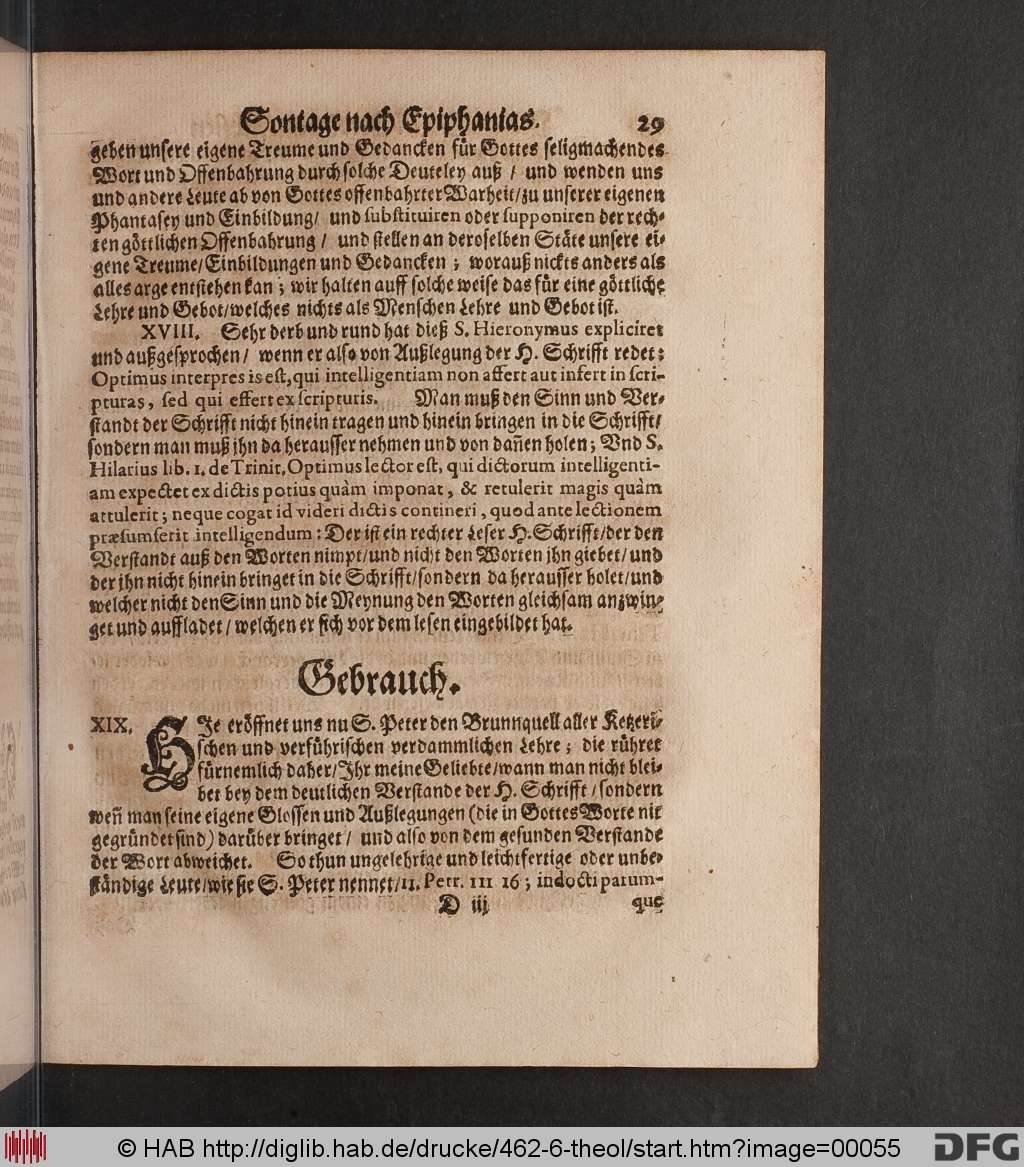 Sontage nach Epiphanias. 29
geben unsere eigene Treume und Gedancken für Gottes seligmachendes
Wort und Offenbahrung durch solche Deuteley auß / und wenden uns
und andere Leute ab von Gottes offenbahrter Warheit/zu unserer eigenen
Phantasey und Einbildung/ und substituiren oder supponiren der rech-
ten göttlichen Offenbahrung / und stellen an deroselben Stäte unsere ei-
gene Treume/Einbildungen und Gedancken ; worauß nickts anders als
alles arge entstehen kan ; wir halten auff solche weise das für eine göttliche
Lehre und Gebot/welches nichts als Menschen Lehre und Gebot ist.
XVIII. Sehr derb und rund hat dieß S. Hieronymus expliciret
und außgesprochen/ wenn er also von Außlegung der H. Schrifft redet:
Optimus interpres is est, qui intelligentiam non affert aut infert in scri-
pturas, sed qui effert ex scripturis. Man muß den Sinn und Ver-
standt der Schrifft nicht hinein tragen und hinein bringen in die Schrifft/
sondern man muß ihn da herausser nehmen und von dañen holen; Vnd S.
Hilarius lib. 1. de Trinit, Optimus lector est, qui dictorum intelligenti-
am expectet ex dictis potius quàm imponat, & retulerit magis quàm
attulerit; neque cogat id videri dictis contineri, quod ante lectionem
præsumserit intelligendum: Der ist ein rechter Leser H. Schrifft/der den
Verstandt auß den Worten nimpt/und nicht den Worten ihn giebet/ und
der ihn nicht hinein bringet in die Schrifft/sondern da herausser holet/und
welcher nicht den Sinn und die Meynung den Worten gleichsam anzwin-
get und auffladet / welchen er sich vor dem lesen eingebildet hat.
Gebrauch.
XIX. HIe eröffnet uns nu S. Peter den Brunnquell aller Ketzeri-
schen und verführischen verdammlichen Lehre ; die rühret
fürnemlich daher/Ihr meine Geliebte/wann man nicht blei-
bet bey dem deutlichen Verstande der H. Schrifft /sondern
weñ man seine eigene Glossen und Außlegungen (die in Gottes Worte nit
gegründet sind) darüber bringet / und also von dem gesunden Verstande
der Wort abweichet. So thun ungelehrige und leichtfertige oder unbe-
ständige Leute/wie sie S. Peter nennet/11. Petr. III 16 ; indocti parum-
D iij que
© HAB http://diglib.hab.de/drucke/462-6-theol/start.htm?image=00055 DFG